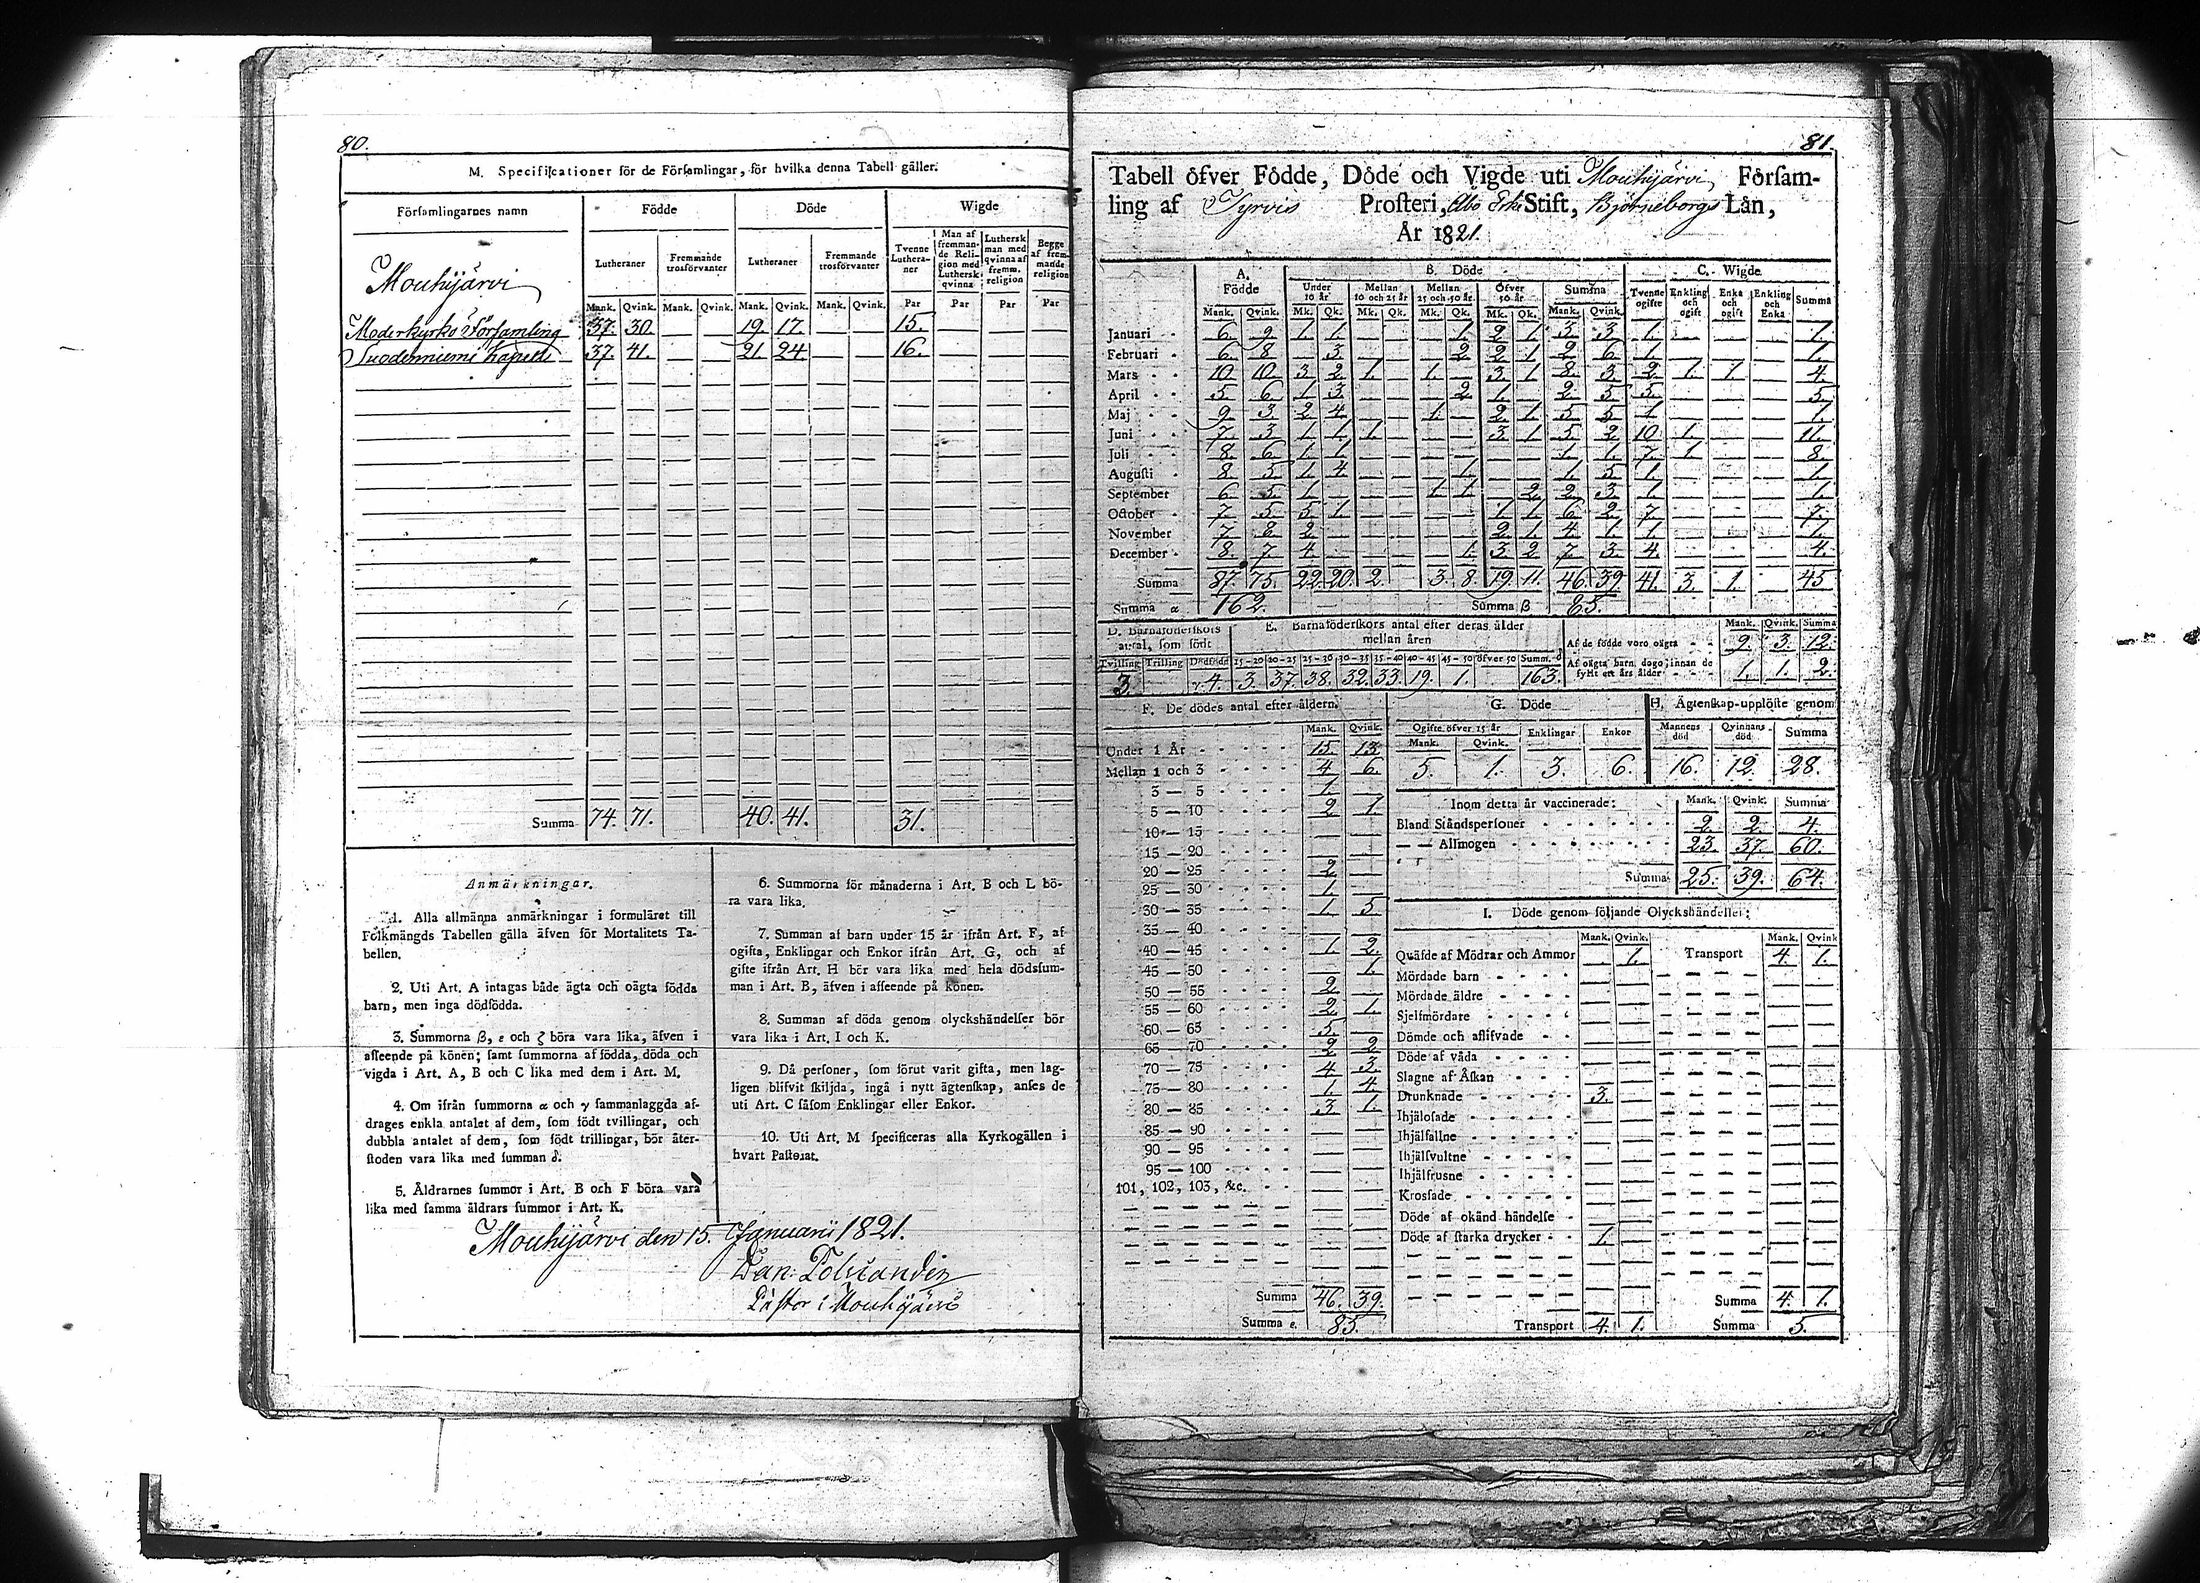 80.
M. Specificationer för de Församlingar, för hvilka denna Tabell gäller.
Församlingarnes namn Födde Döde Wigde
Lutheraner Fremmande trosförvanter Lutheraner Fremmande trosförvanter Tvenne Lutheraner Man af fremmande Religion med Luthersk qvinna Luthersk man med qvinna af fremm. religion Begge af fremmande religion
Mank. Qvink. Mank. Qvink. Mank. Qvink. Mank. Qvink. Par Par Par Par
Mouhijärvi
Moderkyrko Församling 37. 30. — — 19. 17. — — 15. — — —
Suodenniemi Kapell 37. 41. — — 21. 24. — — 16. — — —
Summa 74. 71. 40. 41. 31.
Anmärkningar.
1. Alla allmänna anmärkningar i formuläret till
Folkmängds Tabellen gälla äfven för Mortalitets Ta-
bellen.
2. Uti Art. A intagas både ägta och oägta födda
barn, men inga dödfödda.
3. Summorna β, ε och ζ böra vara lika, äfven i
afseende på könen; samt summorna af födda, döda och
vigda i Art. A, B och C lika med dem i Art. M.
4. Om ifrån summorna α och γ sammanlaggda af-
drages enkla antalet af dem, som födt tvillingar, och
dubbla antalet af dem, som födt trillingar, bör åter-
stoden vara lika med summan δ.
5. Åldrarnes summor i Art. B och F böra vara
lika med samma åldrars summor i Art. K.
6. Summorna för månaderna i Art. B och L bö-
ra vara lika.
7. Summan af barn under 15 år ifrån Art. F, af
ogifta, Enklingar och Enkor ifrån Art. G, och af
gifte ifrån Art. H bör vara lika med hela dödssum-
man i Art. B, äfven i afseende på könen.
8. Summan af döda genom olyckshändelser bör
vara lika i Art. I och K.
9. Då personer, som förut varit gifta, men lag-
ligen blifvit skiljda, ingå i nytt ägtenskap, anses de
uti Art. C såsom Enklingar eller Enkor.
10. Uti Art. M specificeras alla Kyrkogällen i
hvart Pastorat.
Mouhijärvi den 15. Januarii 1821.
Dan:
Pastor i Mouhijärvi
81.
Tabell öfver Födde, Döde och Vigde uti Mouhijärvi Försam-
ling af Tyrvis Prosteri, Åbo Erke Stift, Björneborgs Län,
År 1821.
A. Födde B. Döde C. Wigde
Under 10 år Mellan 10 och 25 år Mellan 25 och 50 år Öfver 50 år Summa Tvenne ogifte Enkling och ogift Enka och ogift Enkling och Enka Summa
Mank. Qvink. Mk. Qk. Mk. Qk. Mk. Qk. Mk. Qk. Mank. Qvink.
Januari 6. 9. 1. 1. — — — 1. 2. 1. 3. 3. 1. — — — 1.
Februari 6. 8. — 3. — — — 2. 2. 1. 2. 6. 1. — — — 1.
Mars 10. 10. 3. 2. 1. — 1. — 3. 1. 8. 3. 2. 1. 1. — 4.
April 5. 6. 1. 3. — — — 2. 1. — 2. 5. 5. — — — 5.
Maj 9. 3. 2. 4. — — 1. — 2. 1. 5. 5. 1. — — — 1.
Juni 7. 3. 1. 1. 1. — — — 3. 1. 5. 2. 10. 1. — — 11.
Juli 8. 6. 1. 1. — — — — — — 1. 1. 7. 1. — — 8.
Augusti 8. 5. 1. 4. — — — 1. — — 1. 5. 1. — — — 1.
September 6. 5. 1. — — — 1. 1. — 2. 2. 3. 1. — — — 1.
October 7. 5. 5. 1. — — — — 1. 1. 6. 2. 7. — — — 7.
November 7. 8. 2. — — — — — 2. 1. 4. 1. 1. — — — 1.
December 8. 7. 4. — — — — 1. 3. 2. 7. 3. 4. — — — 4.
Summa 87. 75. 22. 20. 2. 3. 8. 19. 11. 46. 39. 41. 3. 1. — 45
Summa α 162. Summa β 85.
D. Barnaföderskors antal, som födt E. Barnaföderskors antal efter deras ålder mellan åren
Tvilling Trilling Dödfödde 15-20 20-25 25-30 30-35 35-40 40-45 45-50 öfver 50 Summ. δ
3. γ 4. 3. 37. 38. 32. 33. 19. 1. 163.
Mank. Qvink. Summa
Af de födde voro oägta 9. 3. 12.
Af oägta barn, dogo innan de fyllt ett års ålder 1. 1. 2.
F. De dödes antal efter åldern.
Mank. Qvink.
Under 1 År 15. 13.
Mellan 1 och 3 4. 6.
3 — 5 1. —
5 — 10 2. 1.
10 — 15 — —
15 — 20 — —
20 — 25 2. —
25 — 30 1. —
30 — 35 1. 5.
35 — 40 — —
40 — 45 1. 2.
45 — 50 — 1.
50 — 55 2. —
55 — 60 2. 1.
60 — 65 5. —
65 — 70 2. 2.
70 — 75 4. 3.
75 — 80 1. 4.
80 — 85 3. 1.
85 — 90 — —
90 — 95 — —
95 — 100 — —
101, 102, 103, &c. — —
Summa 46. 39.
Summa ε. 85.
G. Döde
Ogifte öfver 15 år Enklingar Enkor
Mank. Qvink.
5. 1. 3. 6.
H. Ägtenskap upplöste genom
Mannens död Qvinnans död Summa
16. 12. 28.
Inom detta år vaccinerade: Mank. Qvink. Summa
Bland Ståndspersoner 2. 2. 4.
— — Allmogen 23. 37. 60.
Summa 25. 39. 64.
I. Döde genom följande Olyckshändelser:
Mank. Qvink. Mank. Qvink
Quäfde af Mödrar och Ammor — 1. Transport 4. 1.
Mördade barn — —
Mördade äldre — —
Sjelfmördare — —
Dömde och aflifvade — —
Döde af våda — —
Slagne af Åskan — —
Drunknade 3. —
Ihjälosade — —
Ihjälfallne — —
Ihjälsvultne — —
Ihjälfrusne — —
Krossade — —
Döde af okänd händelse — —
Döde af starka drycker 1. —
Summa 4. 1.
Transport 4. 1. Summa 5.